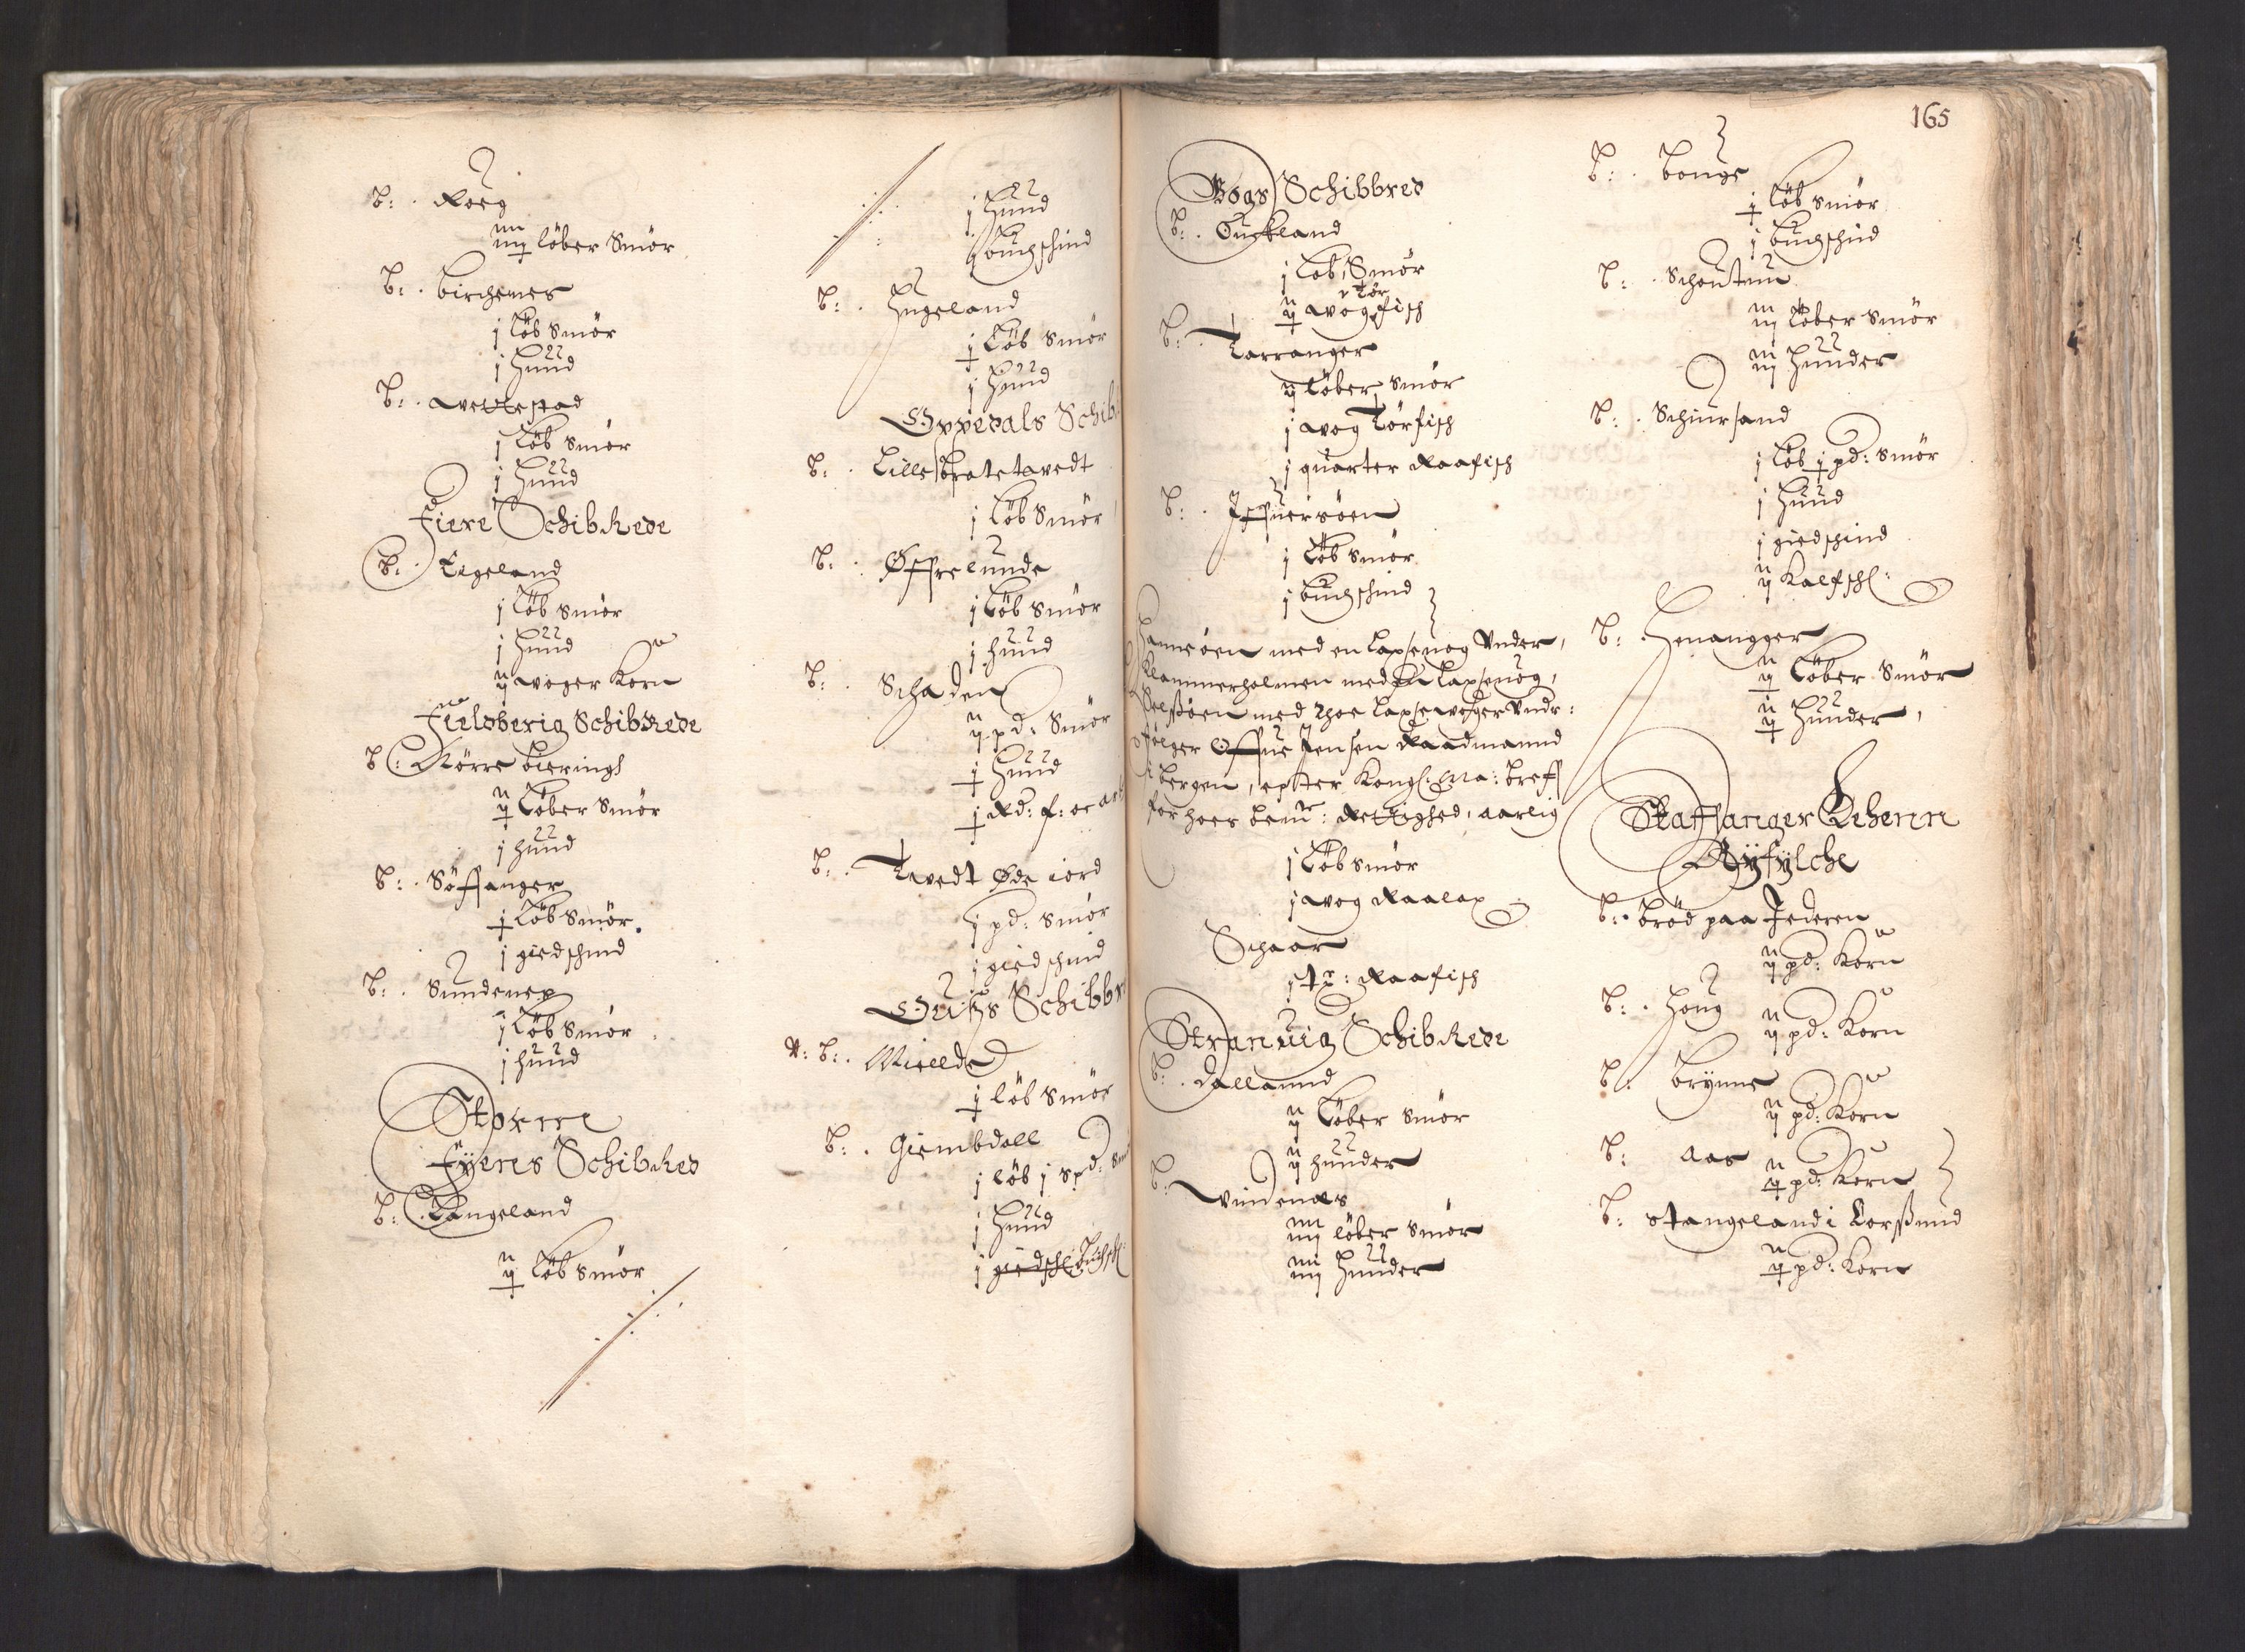 B: . Roeg
iiij löber Smör
B: . birchenes
j löb Smör
j Huud
B: . Avettestad
j löb Smör
j Huud
Fiere Schibrede
B: . Eigeland
j löb Smör
j Huud
ij woger Korn
Fieldberig Schibrede
B: Nörre bierings
ij löber Smör
j huud
B: . Söffanger
j löb Smör.
j giedschind
B: . Sundenes
j löb Smör
j huud
Storen
Fyeres Schibred
B: . Langeland
ij löb Smör
j Huud
j buchschind
B: . Hugeland
j löb Smör
j Huud
Oppedals Schib
B: . Lille bratetavedt
j löb Smör
B: . Øffrelunde
j löb Smör
j huud
B: . Schaden
ij pd: Smör
j Huud
j Rd: f: or
B: . Tvedt Øde iord
j pd: Smör
j giedschind
Schibbr
B: . Mielde
j löb Smör
B: . Giembdall
j löb j spd: Sm
j Huud
j giedsch: buchsch
165
Wogs Schibbred
B: . Oustland
j löb Smör
tör
ij wog fisch
B: . Tarranger
ij löber Smör
j wog törfisch
j quarter Raafisch
B: . Iffuersöen
j löb Smör
j buchschind
Hanneöen med en laxeuog Vnder,
Klammerholmen med En laxeuog,
med thoe laxewoger Vndr:
følger Offue Jensen Raadmannd
i bergen, effter Kongl: Ma: breff
for hoes bem: Rettighed, aarlig
j löb Smör
j wog Raalax
Schaar
j tr: Raafisch
Stranuig Schibrede
B: . Dallannd
ij löber Smör
ij huuder
B: . Vindenæs
iiij löber Smör
iiij Huuder
B: . bouge
j löb Smör
j buchschind
B: . Schoutun
iij löber Smör
iij Huuder
B: . Schiursand
j löb j pd: Smör
j Huud
j giedschind
ij Kalfsch:
B: . Henangger
ij löber Smör
ij Huuder,
Staffanger Lehenn
Ryfylche
B: . Bröd paa Jederen
ij pd: Korn
B: . Houg
ij pd: Korn
B: . Brynne
ij pd: Korn
B: Aas
ij pd: Korn
B: Stangeland i Korssund
ij pd: Korn